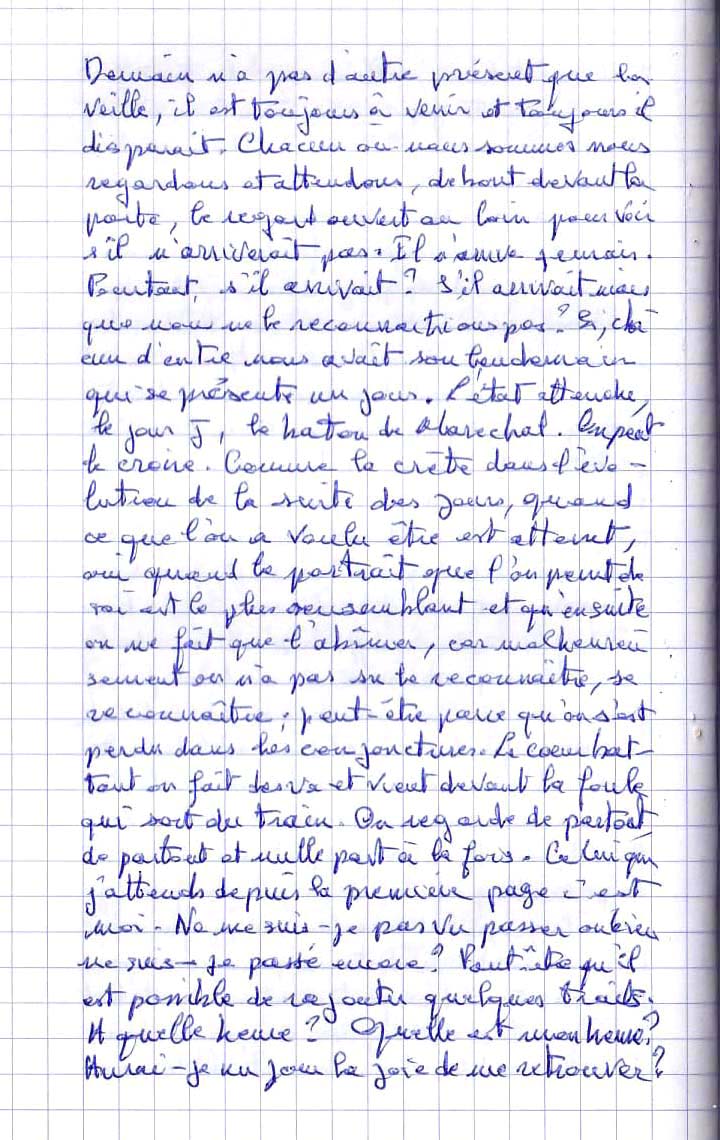 Demain n'a pas d'autre présent que la
veille, il est toujours à venir et toujours il
disparait. Chacun où nous sommes nous
regardons et attendons, debout devant la
porte, le regard ouvert au loin pour voir
s'il n'arriverait pas. Il n'arrive jamais.
Pourtant, s'il arrivait? S'il arrivait mais
que nous ne le reconnaitrions pas? Si, cha
cun d'entre nous avait son lendemain
qui se présente un jour. L'état attendu,
le jour J, le baton de Marechal. On peut
le croire. Comme la crête dans l'évo-
lution de la suite des jours, quand
ce que l'on a voulu être est atteint,
oui quand le portrait que l'on peint de
soi est le plus ressemblant et qu'ensuite
on ne fait que l'abîmer, car malheureu
sement on n'a pas su le reconnaître, se
reconnaître; peut-être parce qu'on s'est
perdu dans les conjonctures. Le coeur bat-
tant on fait des va et vient devant la foule
qui sort du train. On regarde de partout
de partout et nulle part à la fois. Celui que
j'attends depuis la première page c'est
moi. Ne me suis-je pas vu passer ou bien
me suis-je passé encore? Peut-être qu'il
est possible de rajouter quelques traits.
A quelle heure? Quelle est mon heure?
Aurai-je un jour la joie de me retrouver?